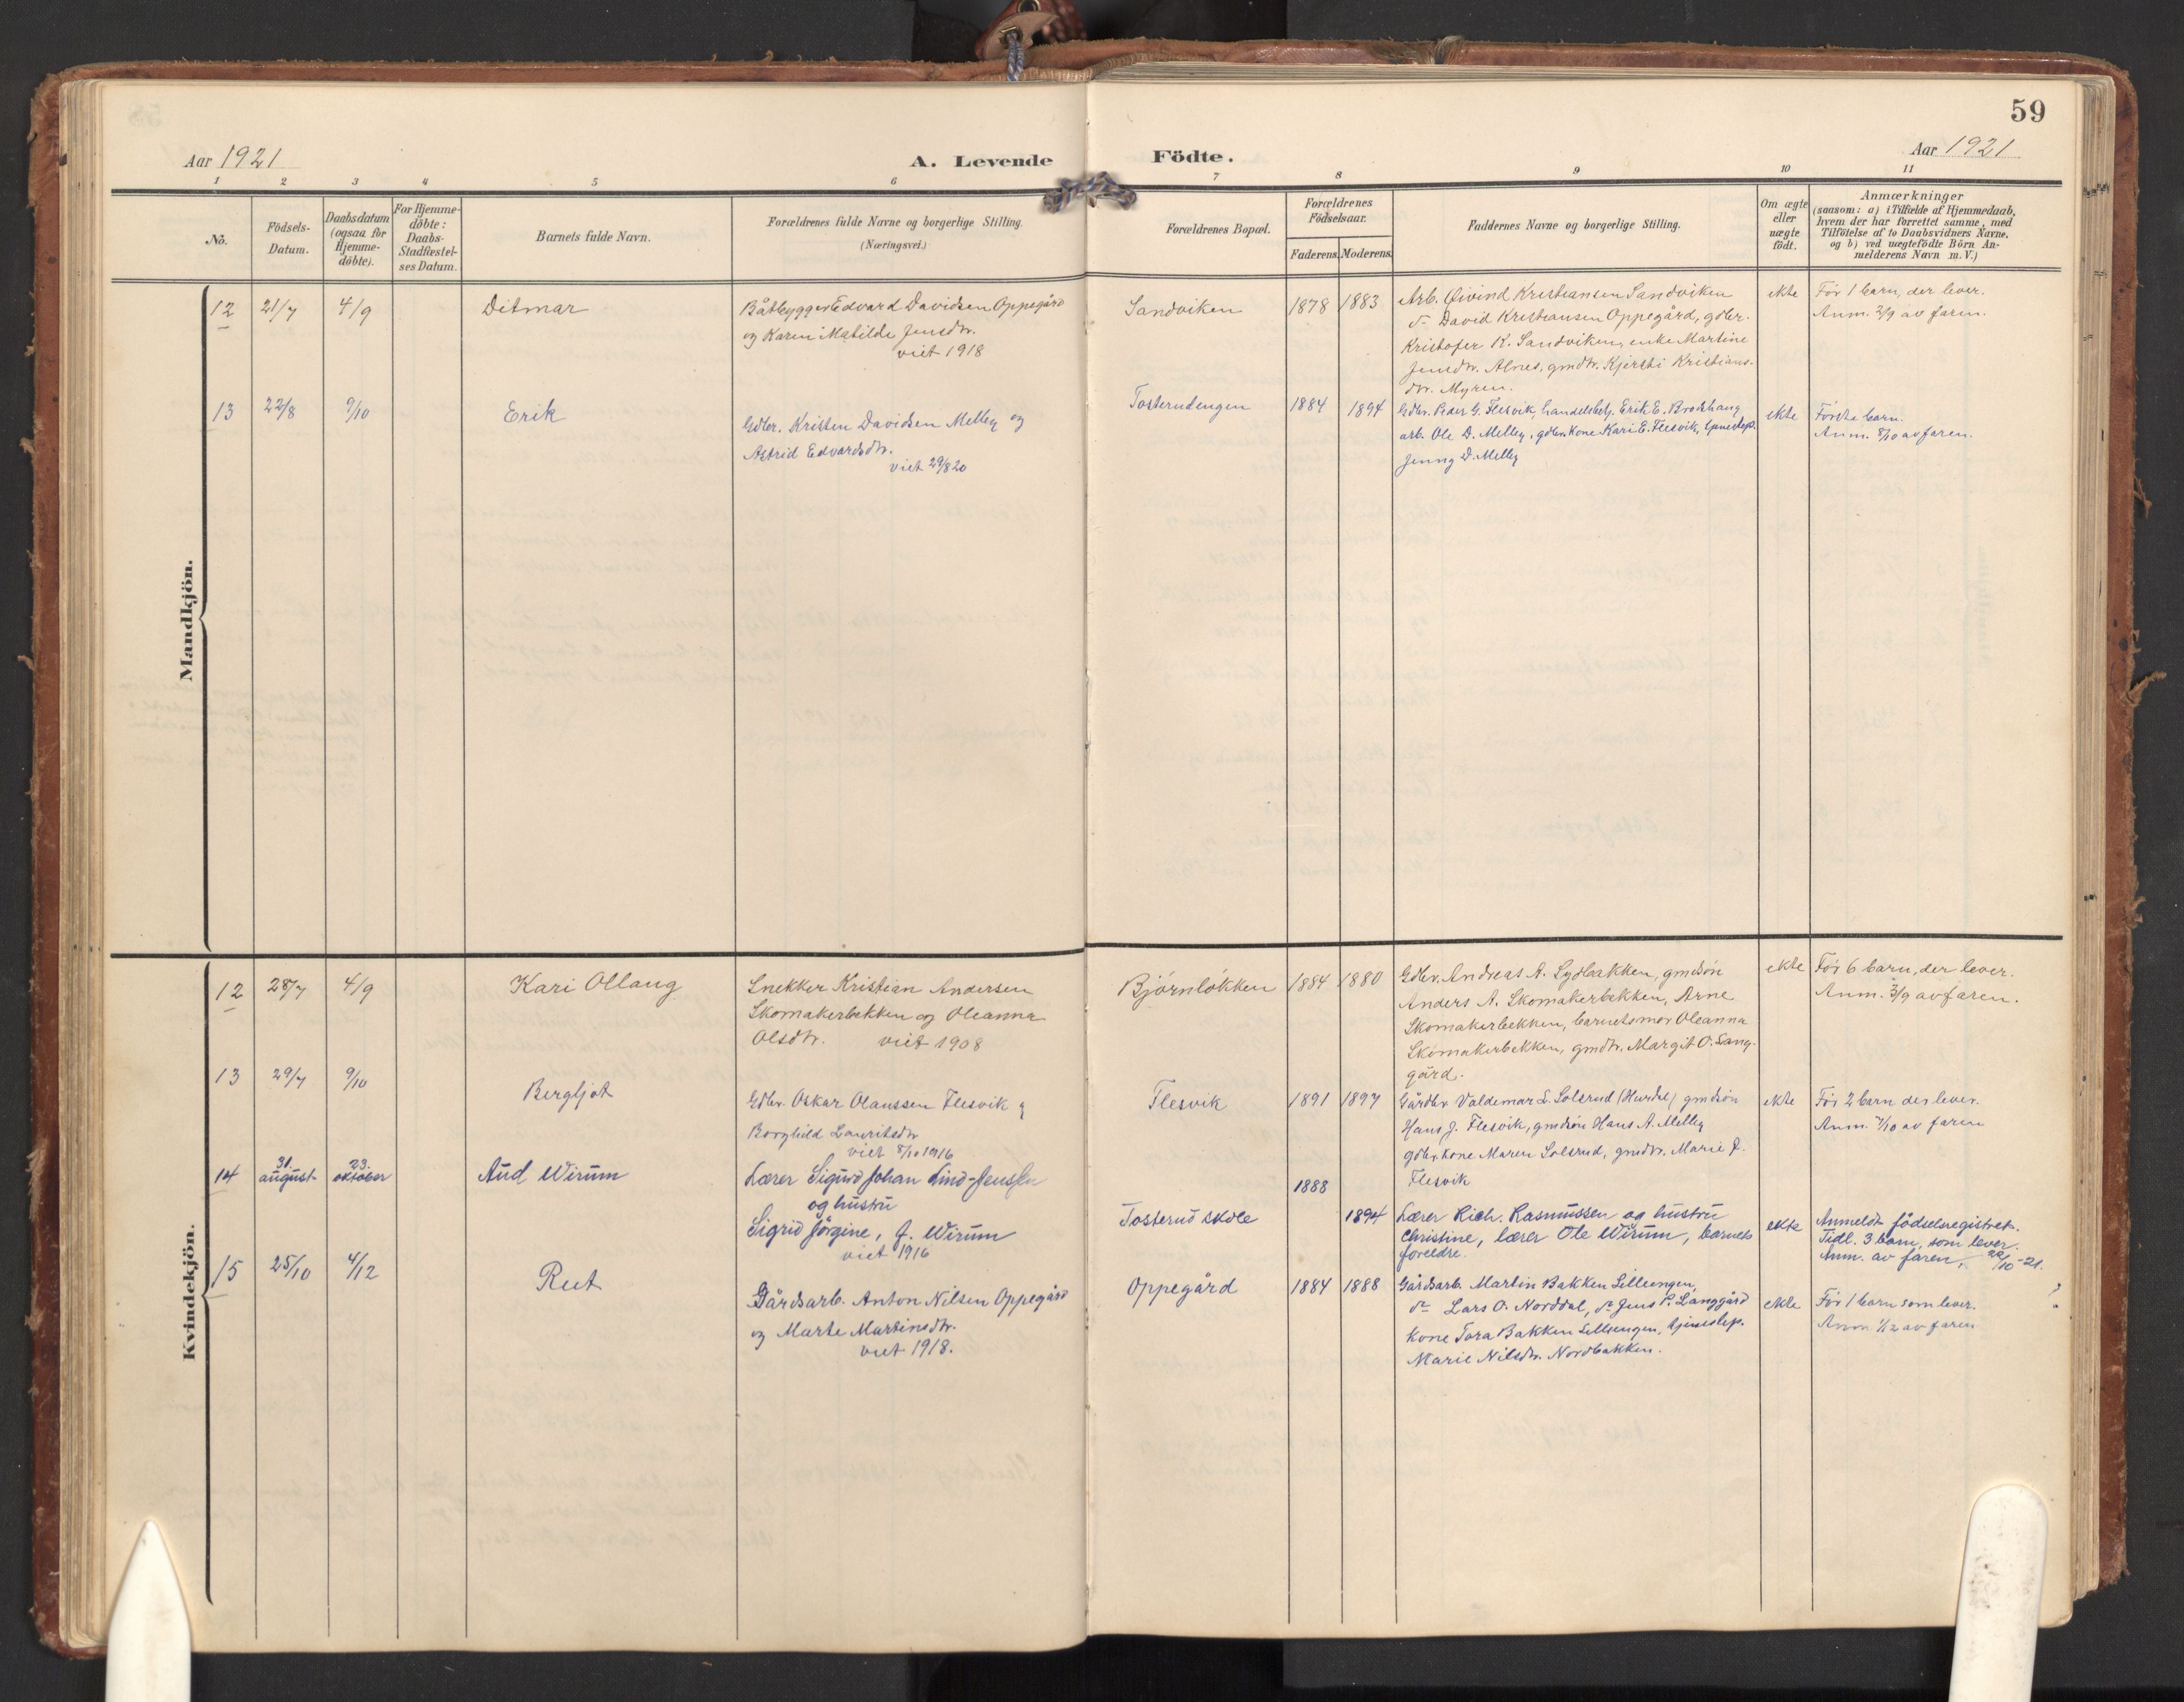 59
Aar 1921
A. Levende
Födte.
Aar 1921
1 2 3 4 5 6 7 8 9 10 11
No.
Födsels-
Datum.
Daabsdatum
(ogsaa för
Hjemme-
döbte).
For Hjemme-
döbte:
Daabs-
Stadfæstel-
ses Datum.
Barnets fulde Navn.
Forældrenes fulde Navne og borgerlige Stilling.
(Næringsvei.)
Forældrenes Bopæl.
Forældrenes
Födselsaar.
Faderens. Moderens.
Faddernes Navne og borgerlige Stilling.
Om ægte
eller
uægte
födt.
Anmærkninger
(saasom: a) i Tilfælde af Hjemmedaab,
hvem der har forrettet samme, med
Tilföielse af to Daabsvidners Navne,
og b) ved uægtefödte Börn An-
melderens Navn m. V.)
Mandkjön.
12
21/7
4/9
Ditmar
Båtbygger Edvard Davidsen Oppegård
og Karen Matilde Jensdtr.
viet 1918
Sandviken
1878 1883
Arb. Øivind Kristiansen Sandviken
d- David Kristiansen Oppegård, gdbr.
Kristofer K. Sandviken, enke Martine
Jensdtr. Alnes, gmdtr. Kjersti Kristians-
dtr. Myren.
ekte
Før 1 barn, der lever.
Anm. 2/9 av faren.
13
22/8
9/10
Erik
Gdbr. Kristen Davidsen Melby og
Astrid Edvardsdtr.
viet 29/8 20
Tosterudengen
1884 1894
Gdbr. Peder G. Flesvik, handelsbetj. Erik E. Brodshaug
arb. Ole D. Melby, gdbr. kone Kari E. Flesvik, tjenestep.
Jenny D. Melby
ekte
Første barn.
Anm. 8/10 av faren.
Kvindekjön.
12
28/7
4/9
Kari Ollaug
Snekker Kristian Andersen
Skomakerbekken og Oleanna
Olsdtr. viet 1908
Bjørnløkken
1884 1880
Gdbr. Andreas A. Lysbakken, gmdsøn
Anders A. Skomakerbekken, Arne
Skomakerbekken, barnets mor Oleanna
Skomakerbekken, gmdtr. Margit O. Lang-
gård.
ekte
Før 6 barn, der lever.
Anm. 3/9 av faren.
13
29/7
9/10
Bergljot
Gdbr. Oskar Olaussen Flesvik og
Borghild Lauritsdtr
viet 8/10 1916
Flesvik
1891 1897
Gårdbr. Valdemar L. Solsrud (Hurdal) gmdsøn
Hans J. Flesvik, gmdsøn Hans A. Melby
gdbr. kone Maren Solsrud, gmdtr. Marie J.
Flesvik
ekte
Før 2 barn der lever.
Anm. 7/10 av faren
14
31.
august
23.
oktober
Aud Wirum
Lærer Sigurd Johan Lind-Jenssen
og hustru
Sigrid Jørgine, f. Wirum
viet 1916
Tosterud skole
1888
1894
Lærer Rich. Rasmussen og hustru
Christine, lærer Ole Wirum, barnets
foreldre.
ekte
Anmeldt fødselsregistret.
Tidl. 3 barn, som lever.
Anm. av faren, 22/10-21.
15
25/10
4/12
Rut
Gårdsarb. Anton Nilsen Oppegård
og Marte Martinsdtr.
viet 1918.
Oppegård
1884 1888
Gårdsarb. Martin Bakken Lillеengen,
d- Lars O. Norddal, d- Jens P. Langgård
kone Tora Bakken Lilleengen, tjenestep.
Marie Nilsdtr. Nordbakken.
ekte
Før 1 barn som lever.
Anm 1/12 av faren